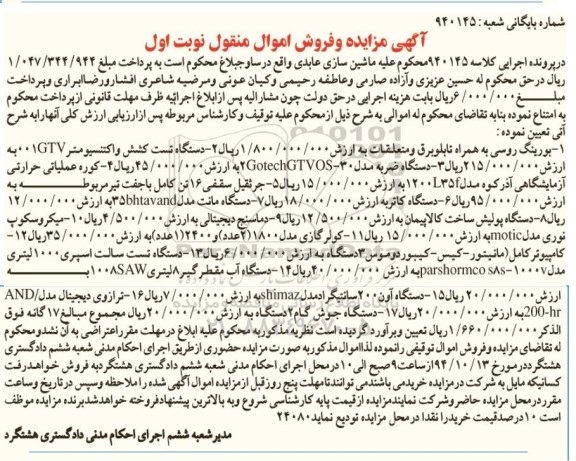 شماره بایگانی شعبه : ۹۴۰۱۴۵
آگهی مزایده وفروش اموال منقول نوبت اول
درپرونده اجرایی کلاسه ۹۴۰۱۴۵محکوم علیه ماشین سازی عابدی واقع درساوجبلاغ محکوم است به پرداخت مبلغ ۱/۰۴۷/۳۴۴/۹۴۴
ریال درحق محکوم له حسین عزیزی وآزاده صارمی وعاطفه رحیمی وکیان عونی ومرضیه شاعری افشارورضاابراری وپرداخت
مبلغ ۶/۰۰۰/۰۰۰ریال بابت هزینه اجرایی درحق دولت چون مشارالیه پس ازابلاغ اجرائیه ظرف مهلت قانونی ازپرداخت محکوم
به امتناع نموده بنابه تقاضای محکوم له اموالی به شرح ذیل ازمحکوم علیه توقیف وکارشناس مربوطه پس ازارزیابی ارزش کلی آنهارابه شرح
آتی تعیین نموده :
۱-بورینگ روسی به همراه تابلوبرق ومتعلقات به ارزش۱/۸۰۰/۰۰۰/۰۰۰ریال۲-دستگاه تست کشش واکتنسیومترGTV۰۰۱به
ارزش۲۱۵/۰۰۰/۰۰۰ریال۳-دستگاه ضربه مدل۳۰-GotechGTVOS۲به ارزش۴۵/۰۰۰/۰۰۰ریال۴-کوره عملیاتی حرارتی
آزمایشگاهی آذرکوه مدل1200L35fبه ارزش۱۵/۰۰۰/۰۰۰ریال۵-جرثقیل سقفی۱۶تن کامل باجفت تیرمربوطه به
ارزش۹۵/۰۰۰/۰۰۰ریال۶-دستگاه کاتربه ارزش۱۸/۰۰۰/۰۰۰ریال۷-دستگاه مانت مدل35bhtavandبه ارزش۱۲/۰۰۰/۰۰۰
ریال۸-دستگاه پولیش ساخت کالاپیمان به ارزش۱۲/۵۰۰/۰۰۰ریال۹-دماسنج دیجیتالی به ارزش۴/۵۰۰/۰۰۰ریال۱۰-میکروسکوپ
نوری مدلmoticبه ارزش۱۵/۰۰۰/۰۰۰ریال۱۱-کولرگازی مدل۱۸۰۰۰(۲عدد)و۲۴۰۰۰(۱عدد)به ارزش۳۵/۰۰۰/۰۰۰ریال۱۲-
کامپیوترکامل(مانیتور-کیس-کیبوردوموس۳دستگاه به ارزش۶/۰۰۰/۰۰۰ریال۱۳-دستگاه تست سالت اسپری۱۰۰۰لیتری
مدل۱۰۰۰v-parshormco sasبه ارزش۴۰/۰۰۰/۲۰۰ریال۱۴-دستگاه آب مقطرگیر۸لیتری۱۰۰۸SAWبه
ارزش۲۰/۰۰۰/۰۰۰ریال۱۵-دستگاه آون۲۰۰سانتیگرادمدلshimazبه ارزش۷/۰۰۰/۰۰۰ریال۱۶-ترازوی دیجیتال مدلAND/
200-hrبه ارزش۲۰/۰۰۰/۰۰۰ریال۱۷-دستگاه جوش گام۲دستگاه به ارزش۲۰/۰۰۰/۰۰۰ریال مجموع مبالغ۱۷گانه فوق
الذکر۱/۶۶۰/۰۰۰/۰۰۰ریال تعیین وبرآورد گردیده است نظریه مذکوربه محکوم علیه ابلاغ درمهلت مقرراعتراضی به آن نشدومحکوم
له تقاضای مزایده وفروش اموال توقیفی رانموده لذااموال مذکوربه صورت مزایده حضوری ازطریق اجرای احکام مدنی شعبه ششم دادگستری
هشتگرددرمورخ ۹۴/۱۰/۱۳ازساعت۹صبح الی۱۰درمحل اجرای احکام مدنی شعبه ششم دادگستری هشتگردبه فروش خواهدرفت
کسانیکه مایل به شرکت درمزایده خریدمی باشندمی توانندتامهلت پنج روزقبل ازمزایده اموال آگهی شده راملاحظه وسپس درتاریخ وساعت
مقرردرمحل مزایده حاضروشرکت نمایندمزایده ازقیمت پایه کارشناسی شروع وبه بالاترین پیشنهادفروخته خواهدشدبرنده مزایده موظف
است ۱۰درصدقیمت خریدرا نقدا درمحل مزایده تودیع نماید۲۴۰۸۰
مدیرشعبه ششم اجرای احکام مدنی دادگستری هشتگرد